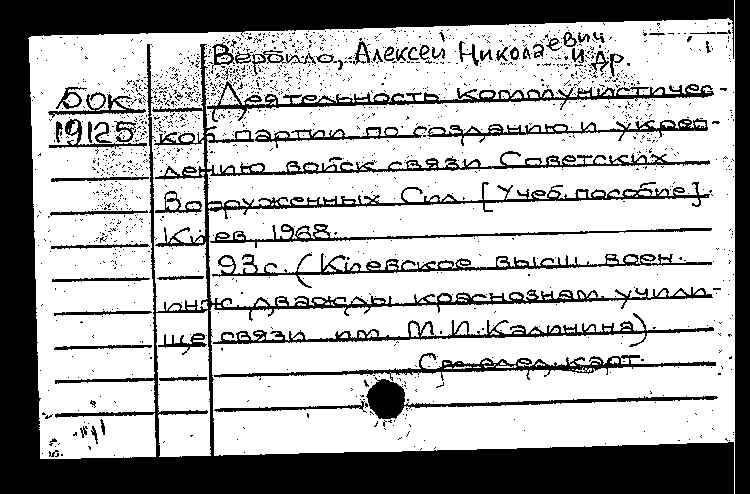 Вербило, Алексей Николаевич
и др.
Бок
19125
Деятельность коммунистичес-
кой партии по созданию и укреп-
лению войск связи Советских
Вооруженных Сил. [Учеб. пособие].
Киев, 1968.
93 с. (Киевское высш. воен.
инж. дважды краснознам. учили-
ще связи им. М.И. Калинина).
См. след. карт.